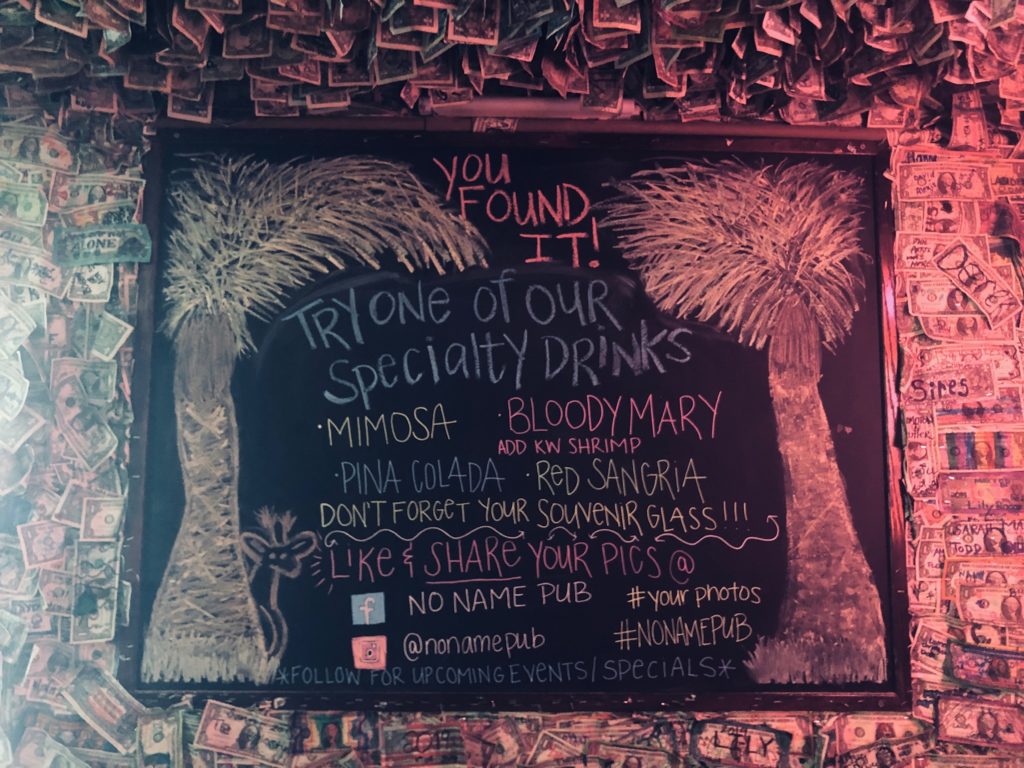 YOU
FOUND
IT!
TRY ONE OF OUR
SPECIALTY DRINKS
·MIMOSA ·BLOODY MARY
ADD KW SHRIMP
·PINA COLADA ·RED SANGRIA
DON'T FORGET YOUR SOUVENIR GLASS!!!
LIKE & SHARE YOUR PICS @
f NO NAME PUB #your photos
@nonamepub #NONAMEPUB
*FOLLOW FOR UPCOMING EVENTS/SPECIALS*
ONE
Sipes
LILY